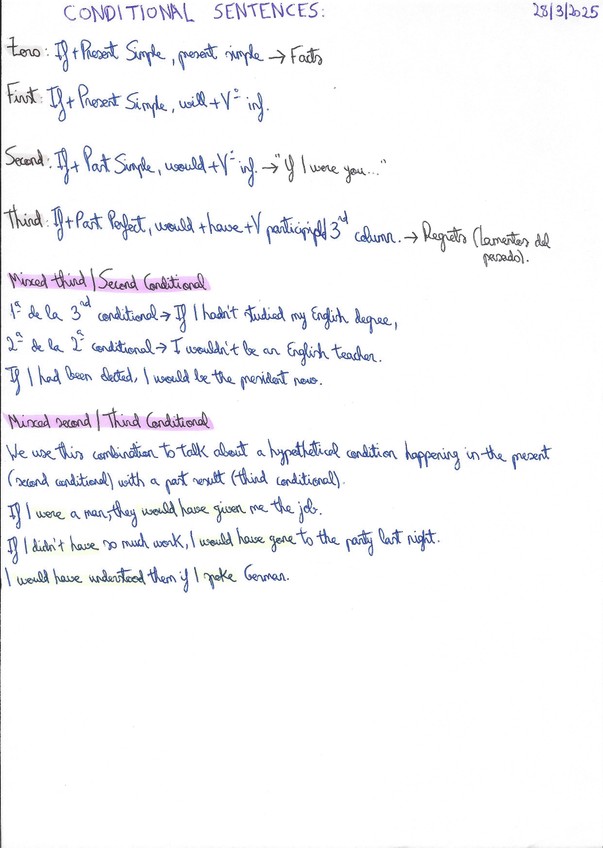 CONDITIONAL SENTENCES:
28/3/2025
Zero: If + Present Simple, present simple → Facts
First: If + Present Simple, will + Vº inf.
Second: If + Past Simple, would + Vº inf. → "If I were you..."
Third: If + Past Perfect, would + have + V participio/3nd column. → Regrets (lamentos del
pasado).
Mixed third / Second Conditional
1ª de la 3nd conditional → If I hadn't studied my English degree,
2ª de la 2ª conditional → I wouldn't be an English teacher.
If I had been elected, I would be the president now.
Mixed second / Third Conditional
We use this combination to talk about a hypothetical condition happening in the present
(second conditional) with a past result (third conditional).
If I were a man, they would have given me the job.
If I didn't have so much work, I would have gone to the party last night.
I would have understood them if I spoke German.